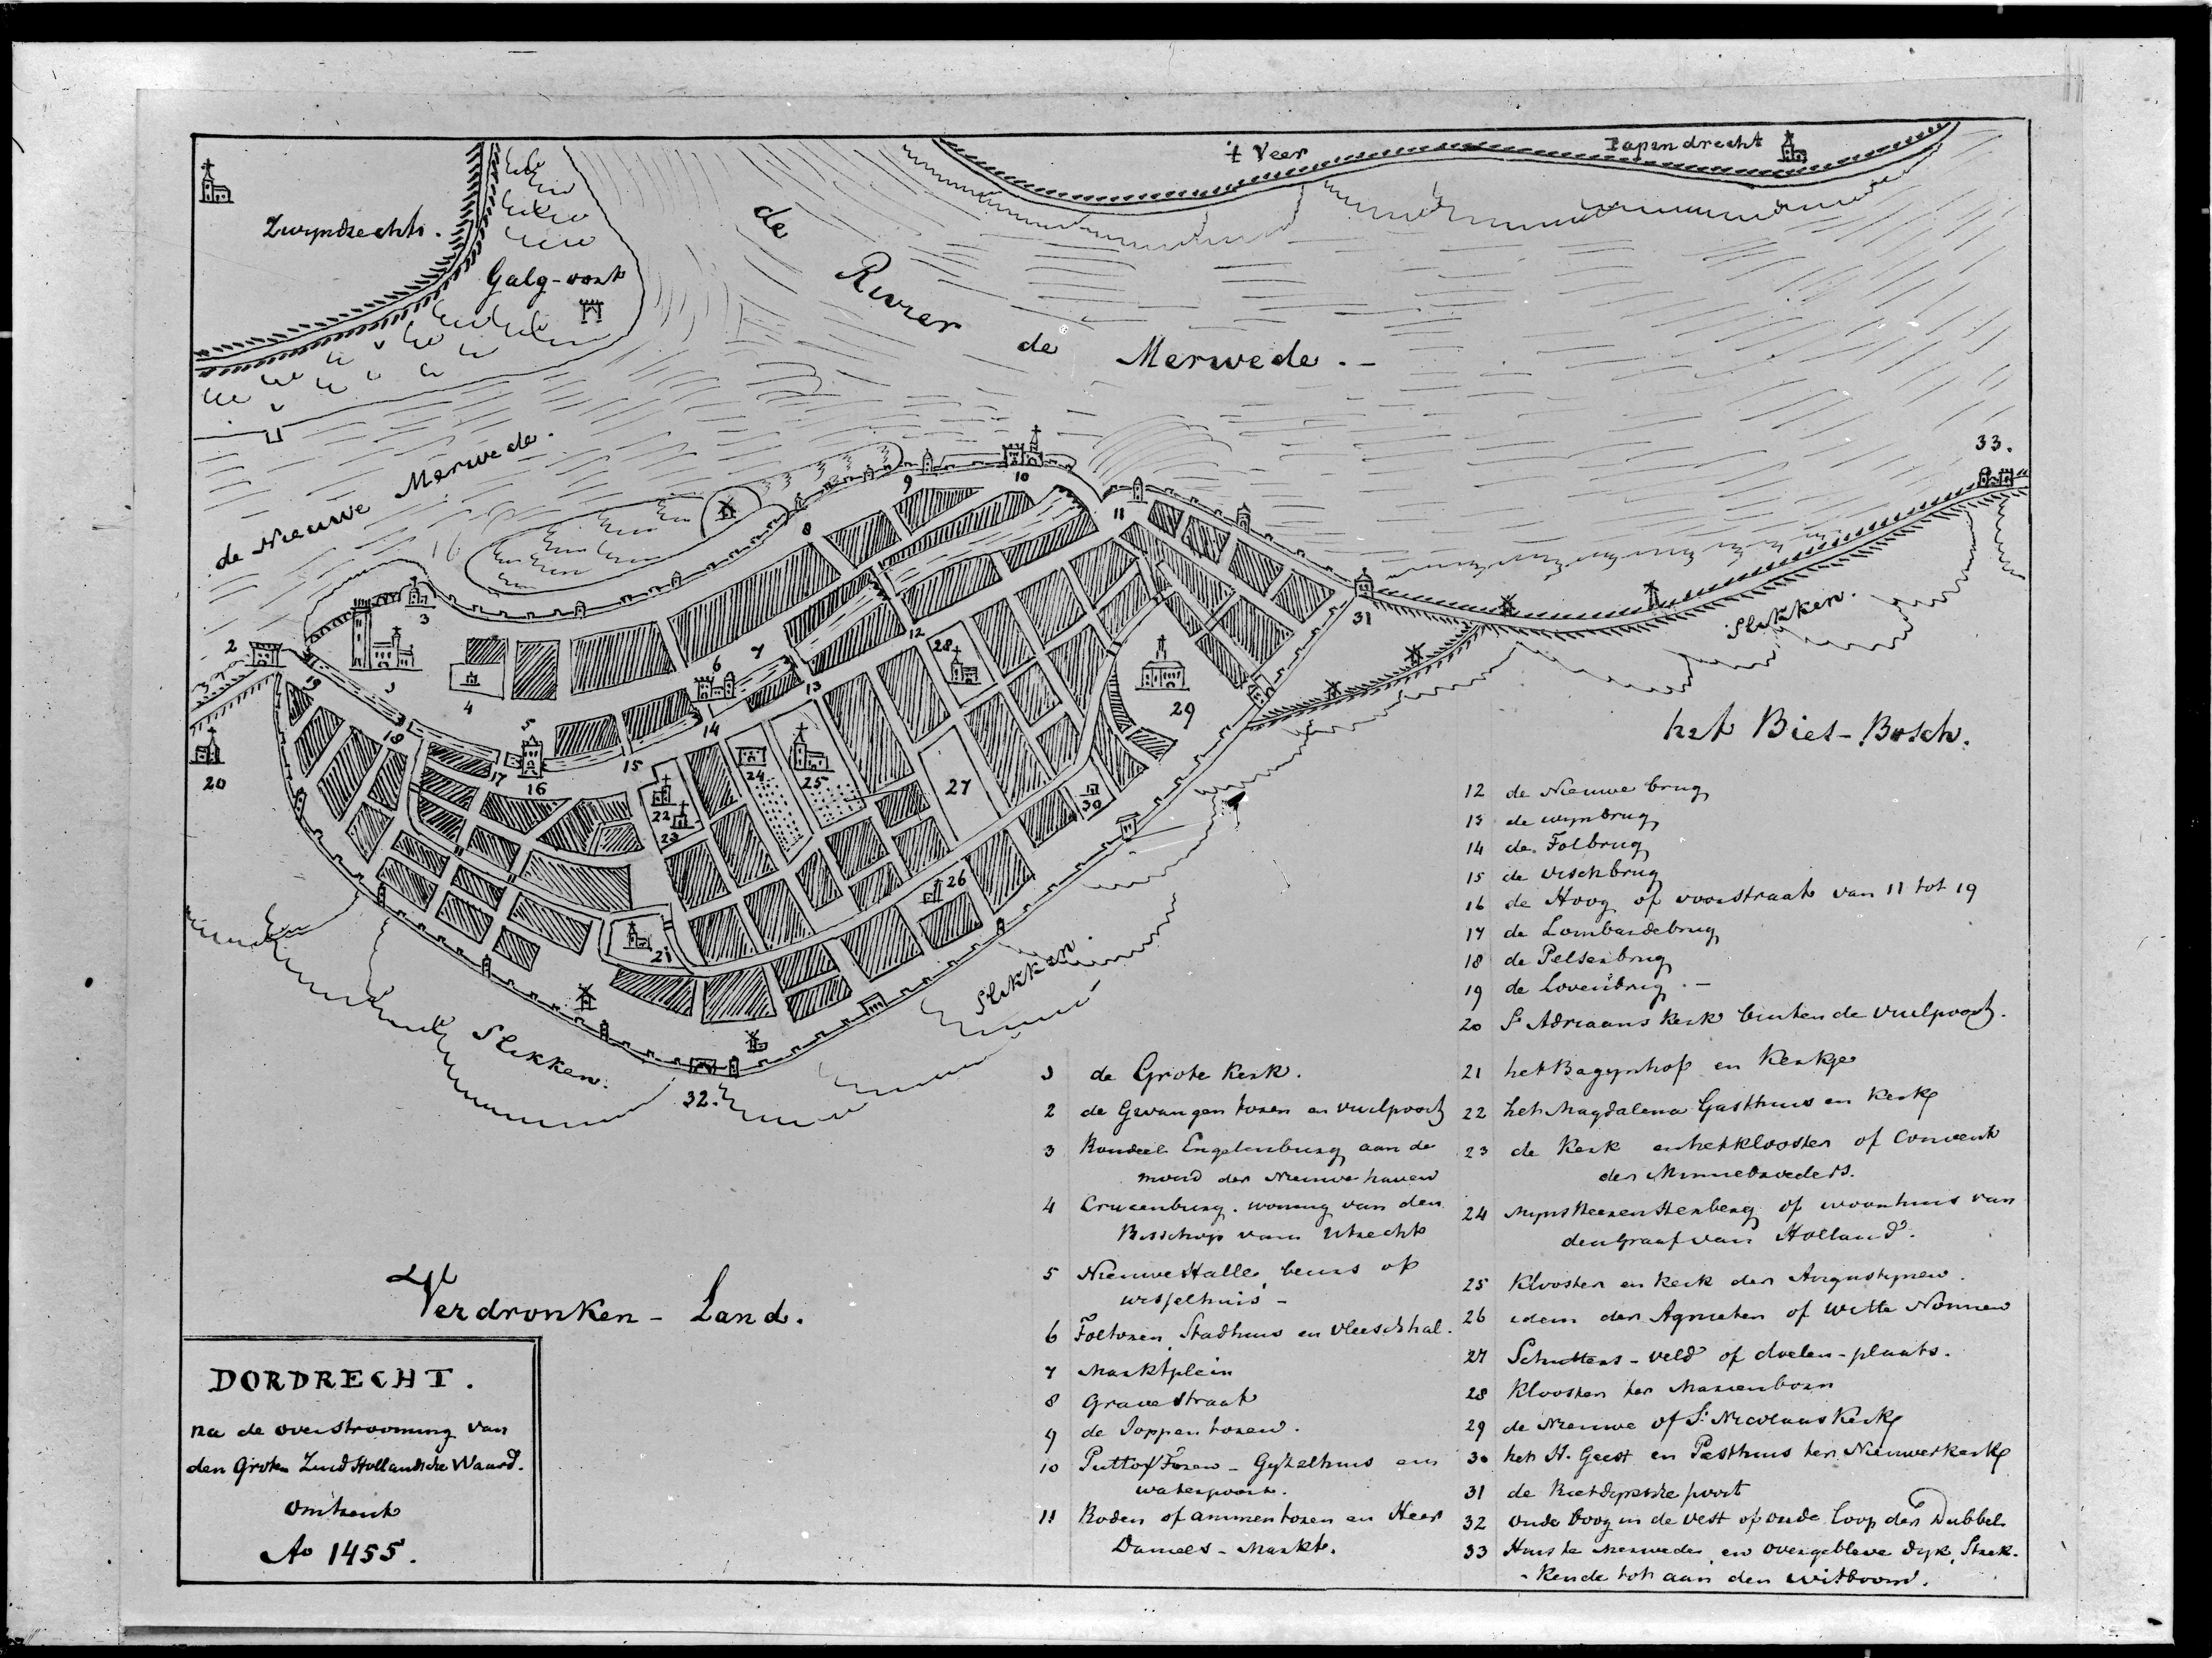 't Veer
Papendrecht
Zwyndrecht.
Galg-oort
de Rivier de Merwede.-
de Nieuwe Merwede.
33.
2
3
8
9
10
11
31
4
5
6
7
12
13
14
15
16
17
18
19
20
28
29
24
25
27
22
23
30
26
21
32.
Slikken.
Slikken
Slikken.
het Bies-Bosch.
't Verdronken-Land.
DORDRECHT.
na de overstrooming van
den Groten Zuid Hollandsche Waard.
omtrent
Ao 1455.
1 de Grote Kerk.
2 de Gevangen toren en vuilpoort
3 Rondeel Engelenburg aan de
mond der Nieuwe haven
4 Crucenburg. woning van den
Bisschop van Utrecht
5 Nieuwe Halle, beurs of
wisselhuis-
6 Toltoren, Stadhuis en vleeschhal.
7 Marktplein
8 Gravestraat
9 de Joppentoren.
10 Puttoxtoren - Gyzelhuis en
waterpoort.
11 Roden of ammentoren en Heer
Daniels-Markt.
12 de Nieuwe brug
13 de wynbrug
14 de Tolbrug
15 de vischbrug
16 de Hoog of voorstraat van 11 tot 19
17 de Lombardebrug
18 de Pelserbrug
19 de Lovenbrug.-
20 St Adriaans Kerk buiten de vuilpoort.
21 het Bagynhof en Kerkje
22 het Magdalena Gasthuis en Kerk
23 de Kerk en het klooster of Convent
der Minnebroeders.
24 Mynsheerenherberg of woonhuis van
den Graaf van Holland.
25 Klooster en kerk der Augustynen.
26 idem der Agnieten of witte Nonnen
27 Schutters-veld of doelen-plaats.
28 Klooster ter Marienborn
29 de Nieuwe of St Nicolaas Kerk
30 het H. Geest en Pesthuis ter Nieuwerkerk
31 de Rietdyksche poort
32 oude boog in de vest of oude loop der Dubbel
33 Huis te Merwede, en overgebleve dyk, Strek-
-kende tot aan den witboom.